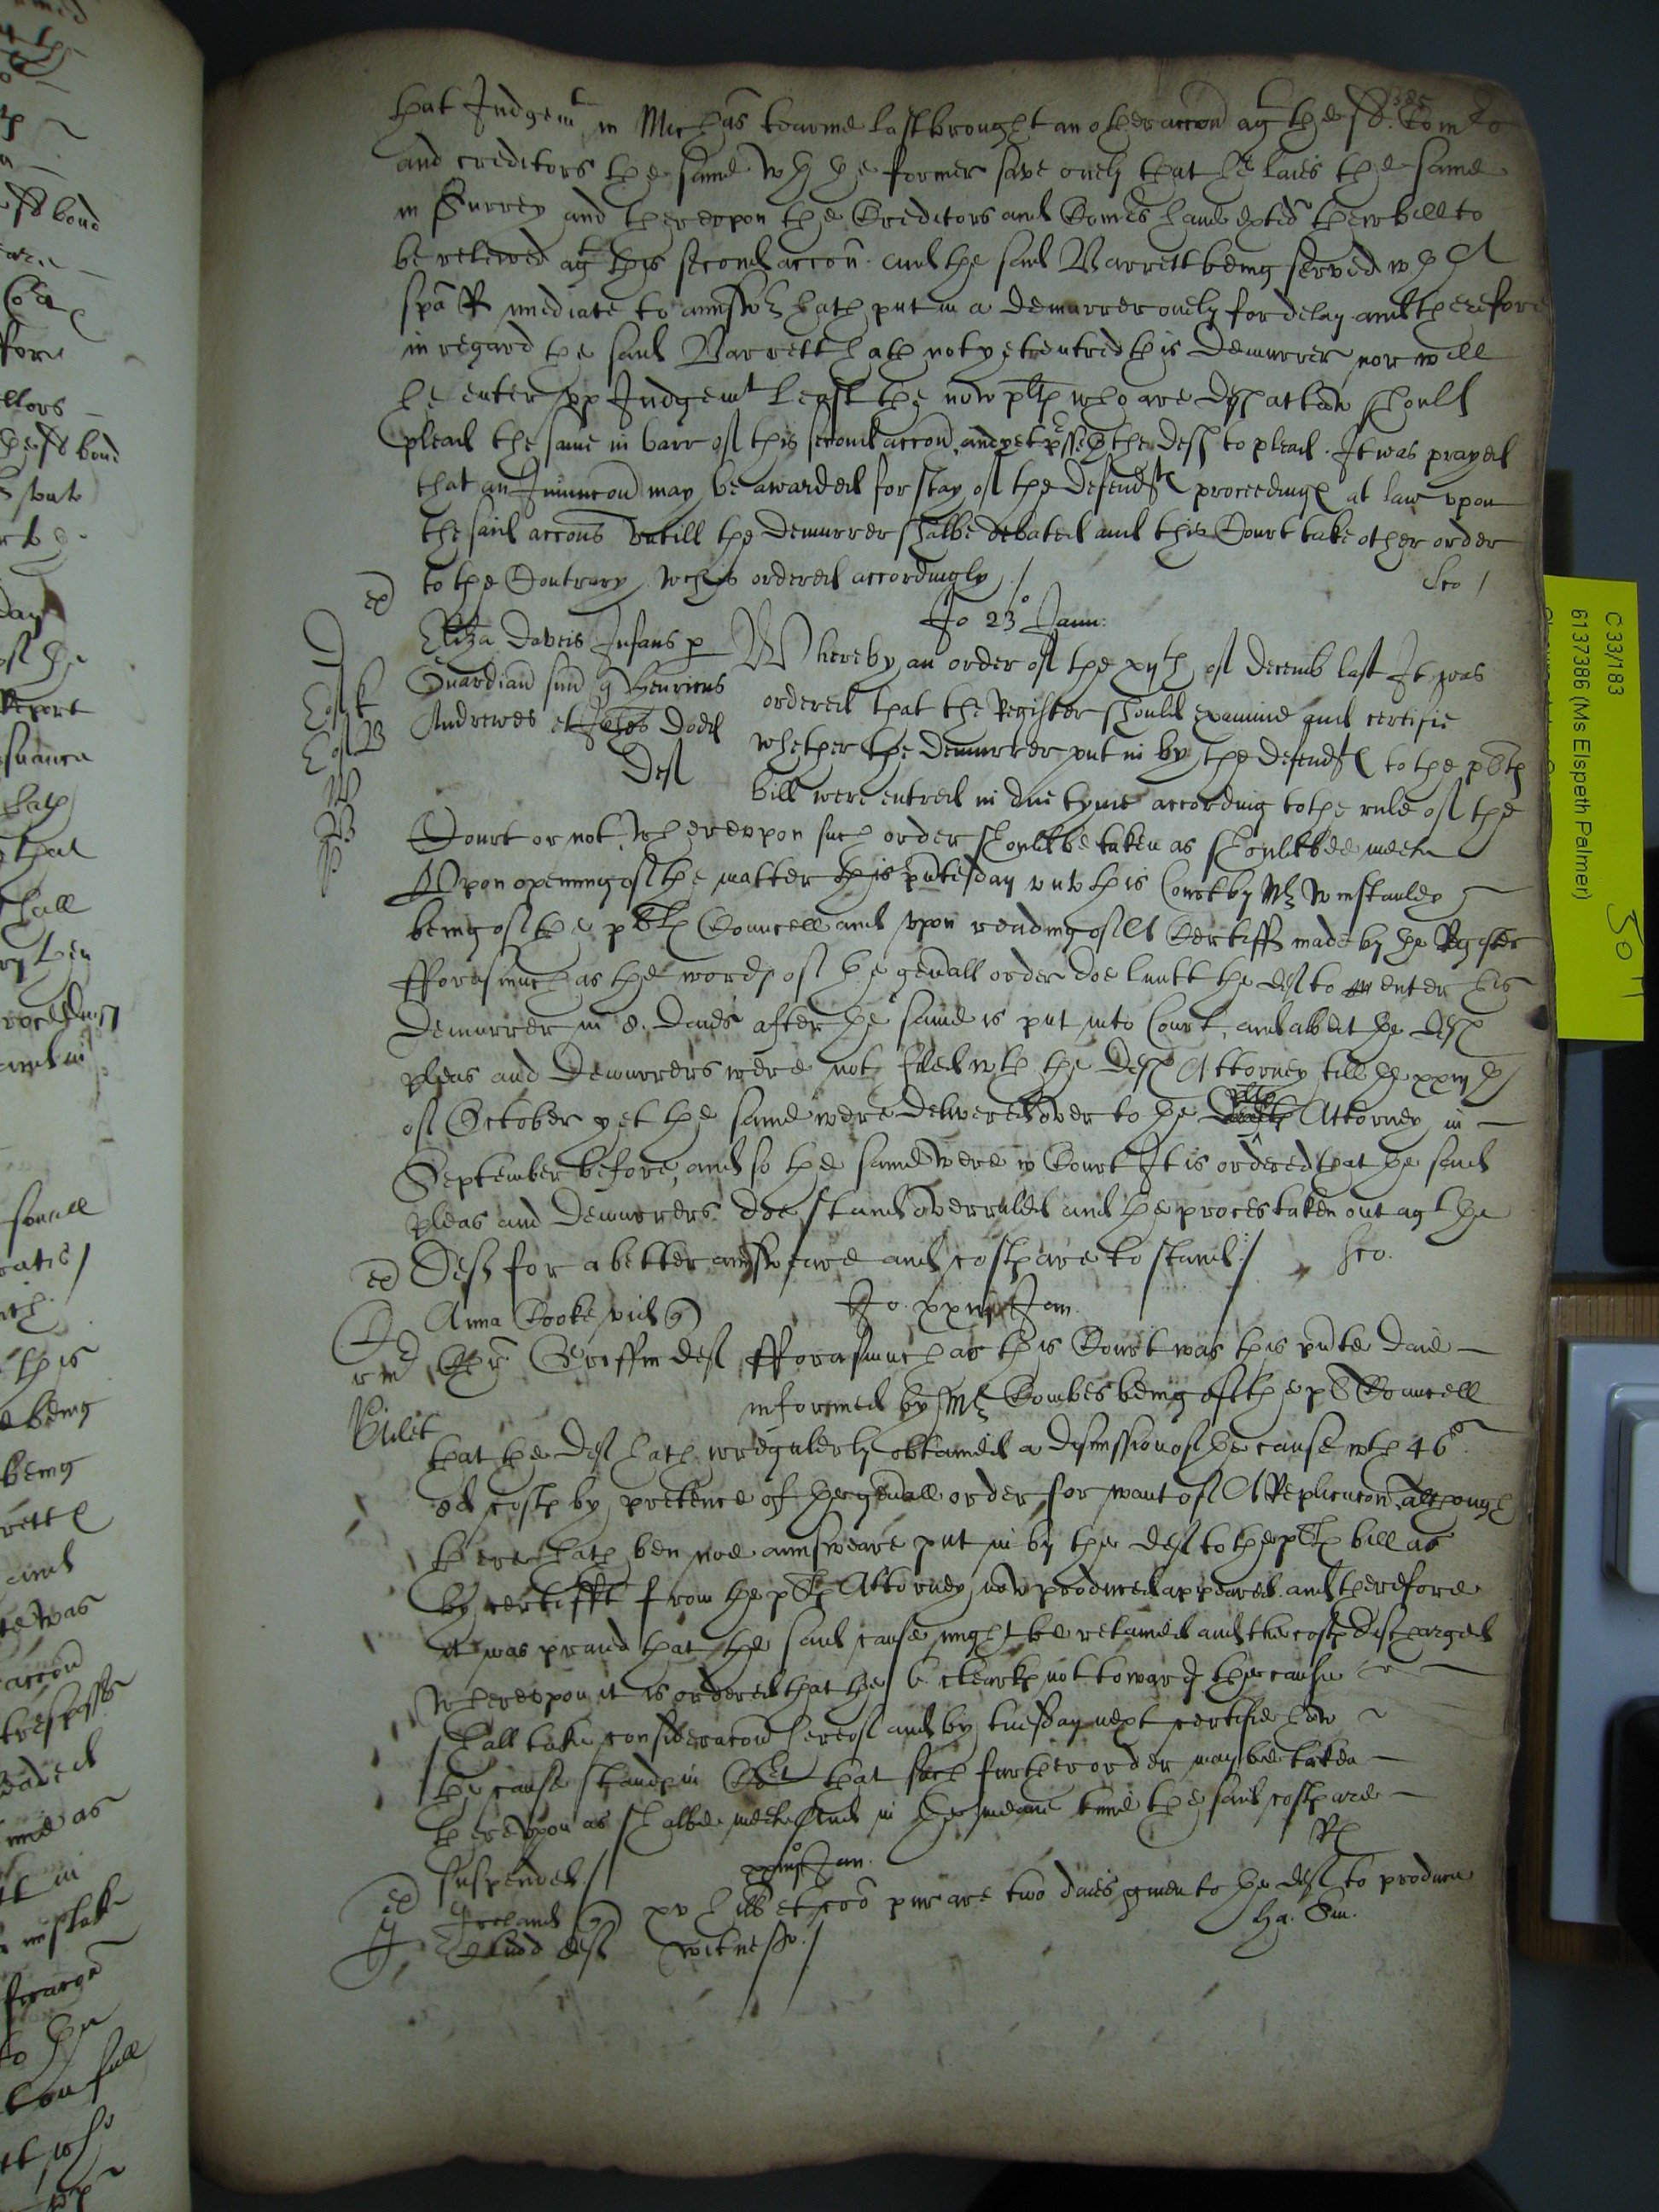 that Judgemt in Michas tearme last brought another accon agt the sd Comrs
and creditors the same wth the former save onely that he laies the same
in Surrey and therevpon the Creditors and Comrs have exted their bill to
be releived agt this second accon and the said Barrett being served wth a
spa R imediate to answr hath put in a demurrer onely for delay and therefore
in regard the said Barrett hath not yet entred this Demurrer nor will
he enter vpp Judgemt least the now plts who are defts at law should
plead the same in barr of this second accon and yet presseth the defts to plead. It was prayed
that an Iniunccon may be awarded for stay of the defendts proceedings at law vpon
the said accons vntill the demurrer shalbe debated and this Court take other order
to the Contrary wch is ordered accordingly /
Jo 23o Janu:
Eliza Daveis Infans p
Guardian suu q Henricus
Andrewes et Dodd
Def
Whereby an order of the xijth of Decemb last It was
ordered that the Register should examine and certifie
whether the Demurrer put in by the defendts to the plts
bill were entred in due tyme according to the rule of the
Court or not, wherevpon such order should be taken as should bee meete
Vpon opening of the matter this pnte day vnto this Court by Mr Winstanley
being of the plts Councell and vpon reading of a Certiff made by the Register
fforasmuch as the words of the genall order doe limitt the def to enter his
Demurrer in 8. daies after the same is put into Court, and albeit the defts
pleas and Demurrers were not filed wth the defts Attorney till the xxiijth
of October yet the same were delivered over to the plts Attorney in
September before, and so the same were in Court It is ordered that the said
pleas and Demurrers doe stand overruled and the proces taken out agt the
Defts for a better answeare and costs are to stand /
Jo. xxiij Jan.
Anna Cooke vid q
Griffin def
fforasmuch as this Court was this pnte daie
informed by Mr Combes being of the plts Councell
that the def hath irregulerly obtained a dismission of the cause wth 46s
8d costs by pretence of the genall order for want of A Replicacon, although
there hath ben noe answeare put in by the def to the plts bill as
by certifft from the plts Attorney now produced appeared and therefore
it was praied that the said cause might be retained and the costs discharged
Wherevpon it is ordered that the 6 clearks not towards the cause
shall take consideracon hereof and by tuesday next certifie how
the cause stands in Cort that such further order may be taken
therevpon as shalbe meete And in the meane time the said costs are
suspended /
xxiijo Jan.
Ireland q
def
xv Hill et cro pur are two daies given to the def to produce
witnesses /
C 33/183
6137386 (Ms Elspeth Palmer)